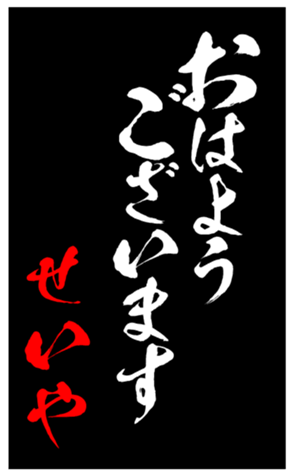 おはよう
ございます
せいや